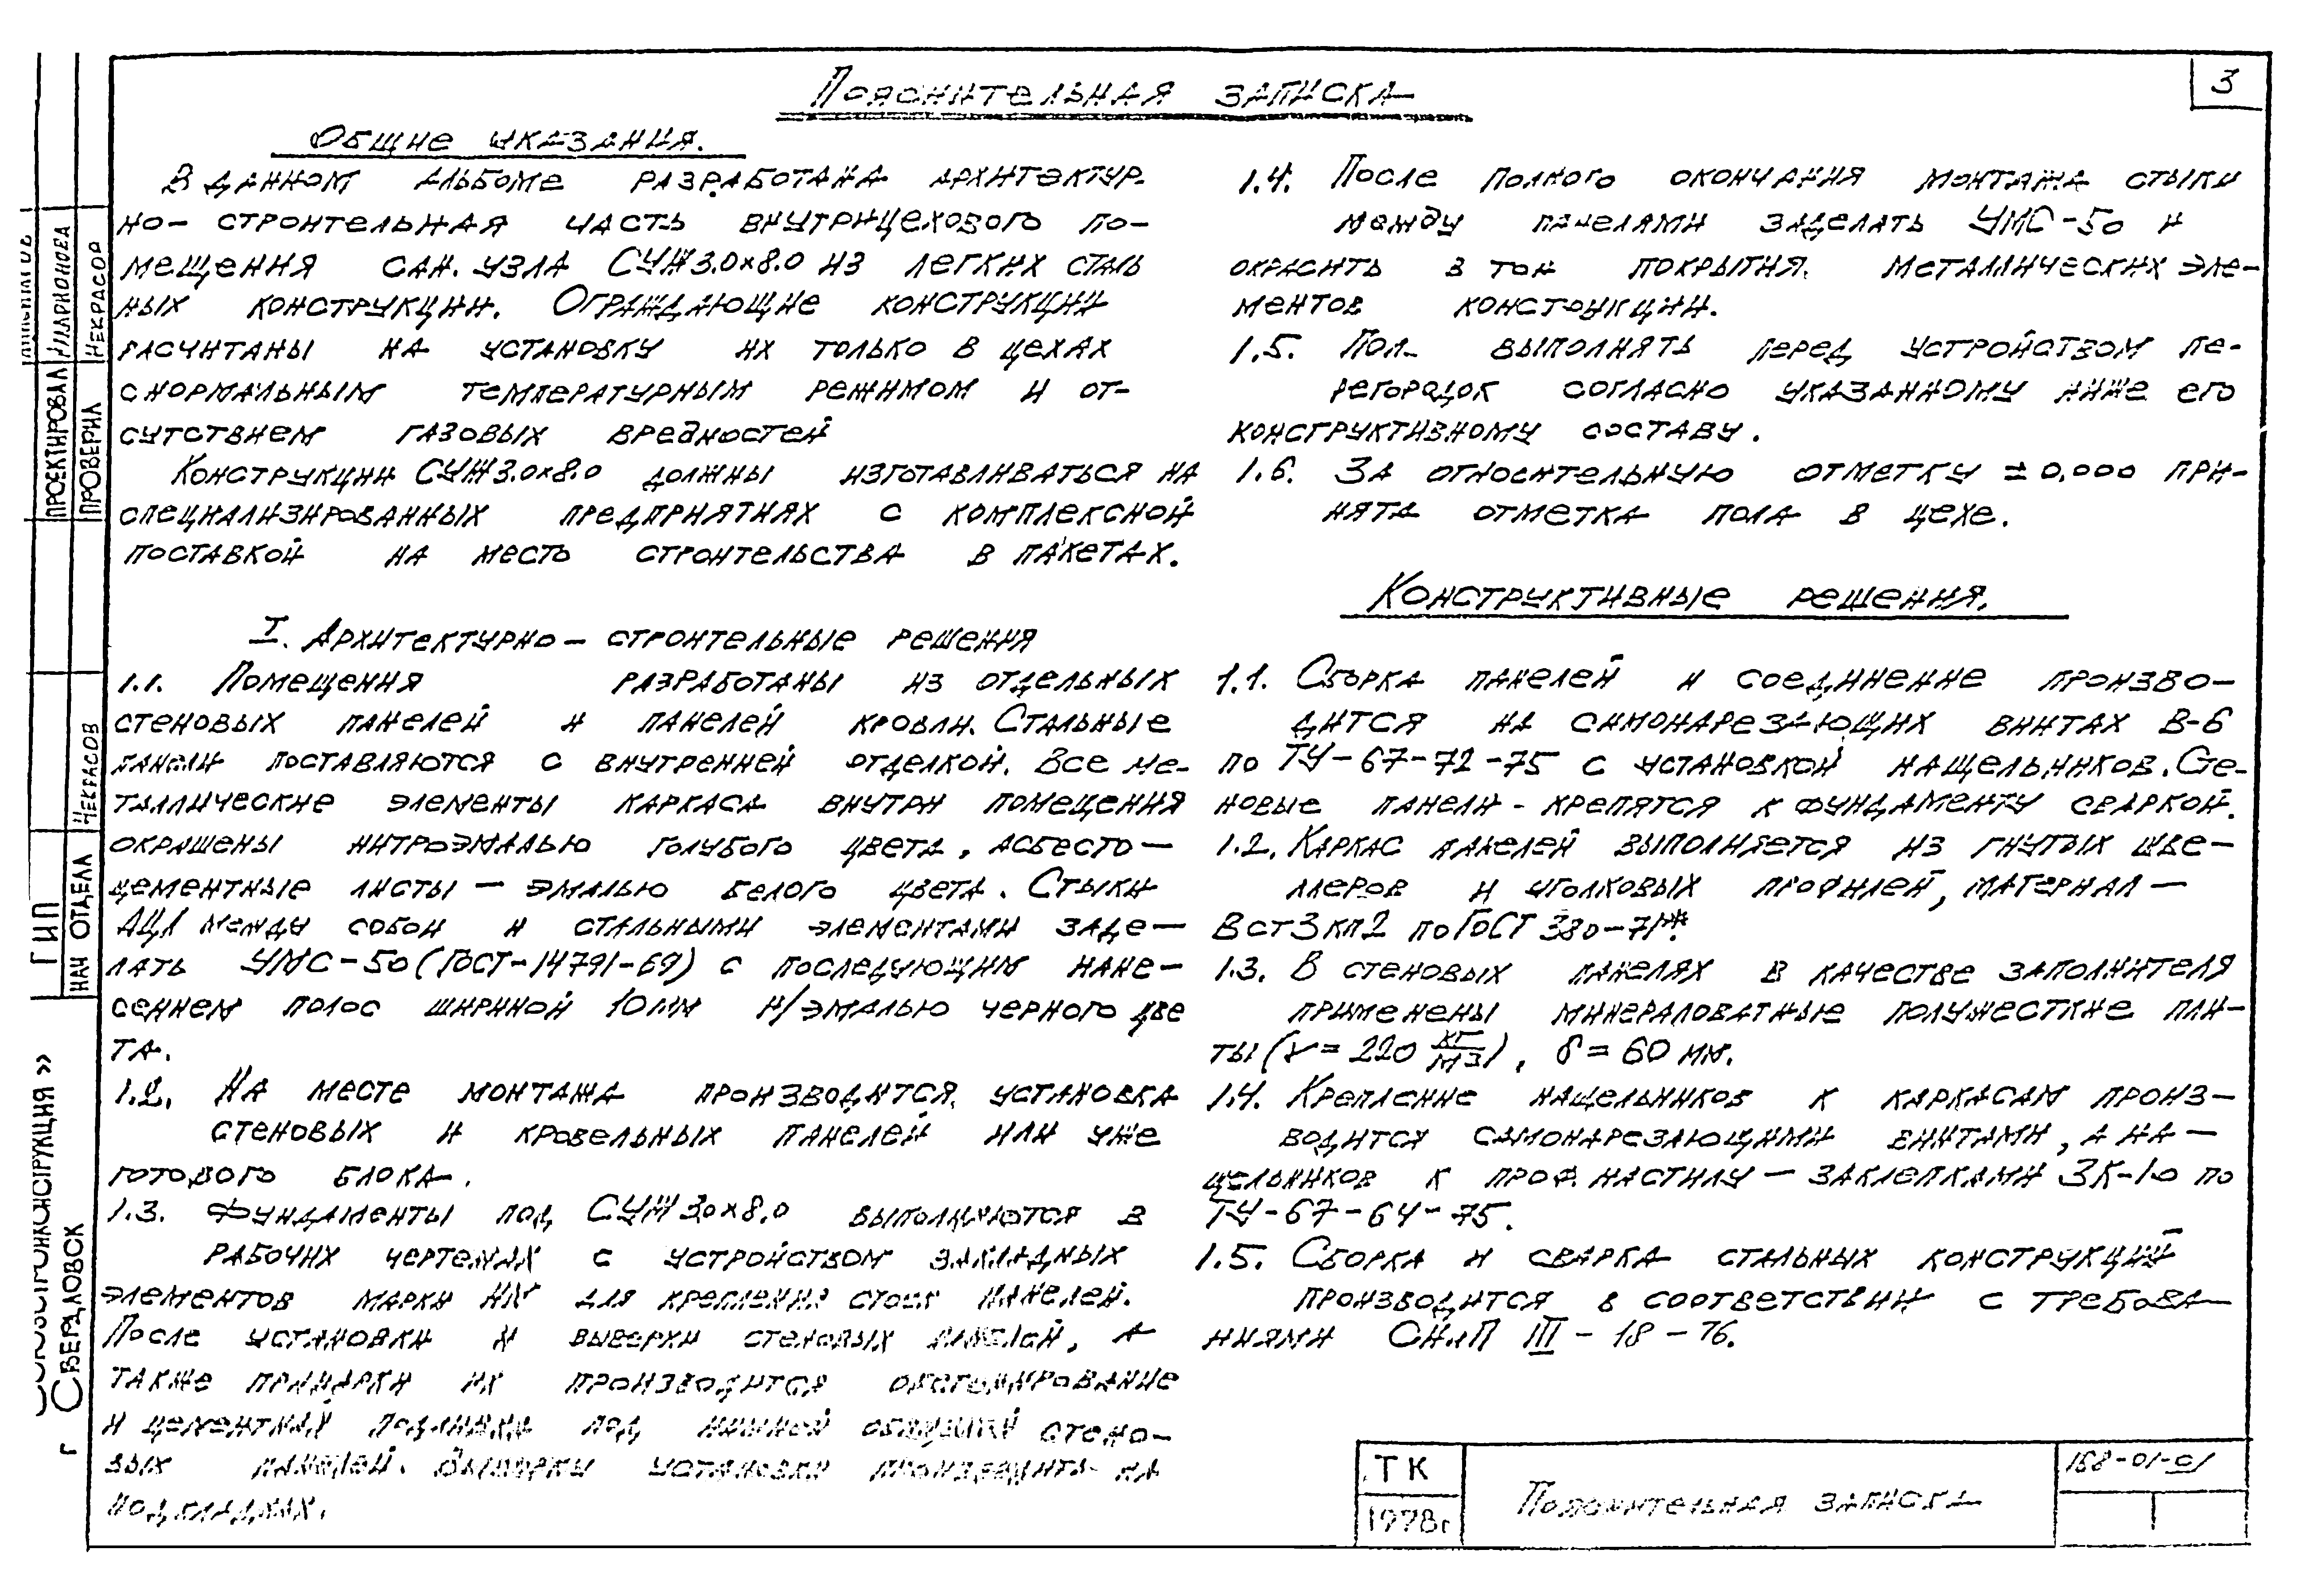 Пояснительная записка
3
Общие указания.
В данном альбоме разработана архитектур-
но-строительная часть внутрицехового по-
мещения сан. узла СУЖ3.0х8.0 из легких сталь
ных конструкции. Ограждающие конструкции
расчитаны на установку их только в цехах
с нормальным температурным режимом и от-
сутствием газовых вредностей
Конструкции СУЖ3.0х8.0 должны изготавливаться на
специализированных предприятиях с комплексной
поставкой на место строительства в пакетах.
I. Архитектурно-строительные решения
1.1. Помещения разработаны из отдельных
стеновых панелей и панелей кровли. Стальные
панели поставляются с внутренней отделкой. Все ме-
таллические элементы каркаса внутри помещения
окрашены нитроэмалью голубого цвета, асбесто-
цементные листы - эмалью белого цвета. Стыки
АЦЛ между собой и стальными элементами заде-
лать УМС-50 (ГОСТ-14791-69) с последующим нане-
сением полос шириной 10мм н/эмалью черного цве
та.
1.2. На месте монтажа производится установка
стеновых и кровельных панелей или уже
готового блока.
1.3. Фундаменты под СУЖ 3.0х8.0 выполняются в
рабочих чертежах с устройством закладных
элементов марки для крепления стоек панелей.
После установки и выверки стеновых панелей, а
также приварки их производится обетонирование
и цементной подливки под нижней обвязкой стено-
вых панелей. Выверки установки производить на
подкладках.
1.4. После полного окончания монтажа стыки
между панелями заделать УМС-50 и
окрасить в тон покрытия металлических эле-
ментов конструкции.
1.5. Пол выполнять перед устройством пе-
регородок согласно указанному ниже его
конструктивному составу.
1.6. За относительную отметку ±0,000 при-
нята отметка пола в цехе.
Конструктивные решения.
1.1. Сборка панелей и соединение произво-
дится на самонарезающих винтах В-6
по ТУ-67-72-75 с установкой нащельников. Сте-
новые панели - крепятся к фундаменту сваркой.
1.2. Каркас панелей выполняется из гнутых шве-
ллеров и уголковых профилей, материал-
Вст3кп2 по ГОСТ 380-71*.
1.3. В стеновых панелях в качестве заполнителя
применены минераловатные полужесткие пли-
ты (γ=220 кг/м3), δ=60 мм.
1.4. Крепление нащельников к каркасам произ-
водится самонарезающими винтами, а на-
щельников к проф.настилу - заклепками ЗК-10 по
ТУ-67-64-75.
1.5. Сборка и сварка стальных конструкций
производится в соответствии с требова-
ниями СНиП III-18-76.
ТК
1978г
Пояснительная записка
168-01-01
Проектировал
Проверил
Некрасов
ГИП
Нач отдела
Некрасов
г Свердловск